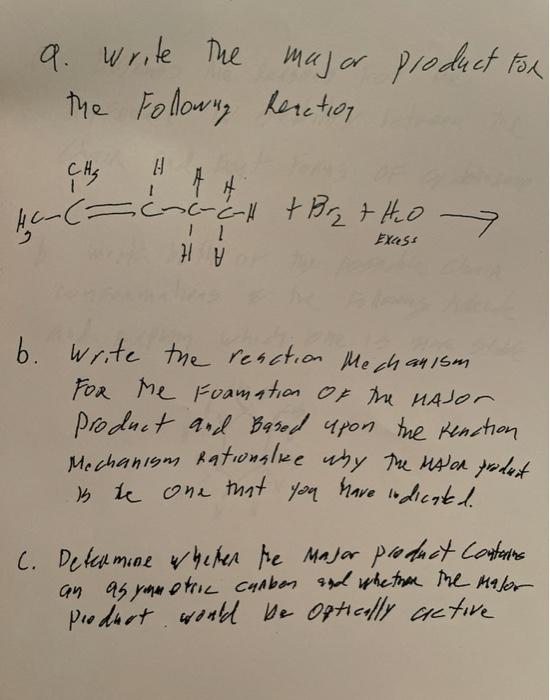 a. Write The major product For
the Following Reaction
CH3 H H H
H3C-C=C-C-C-H + Br2 + H2O →
H H Excess
b. Write the reaction Mechanism
For The Foamation OF The MAJOR
Product and Based upon the Reaction
Mechanism Rationalize why The MAJOR product
is the one that you have indicated.
C. Determine whether the Major product Contains
an asymmetric carbon and whether The Major
Product would be optically active